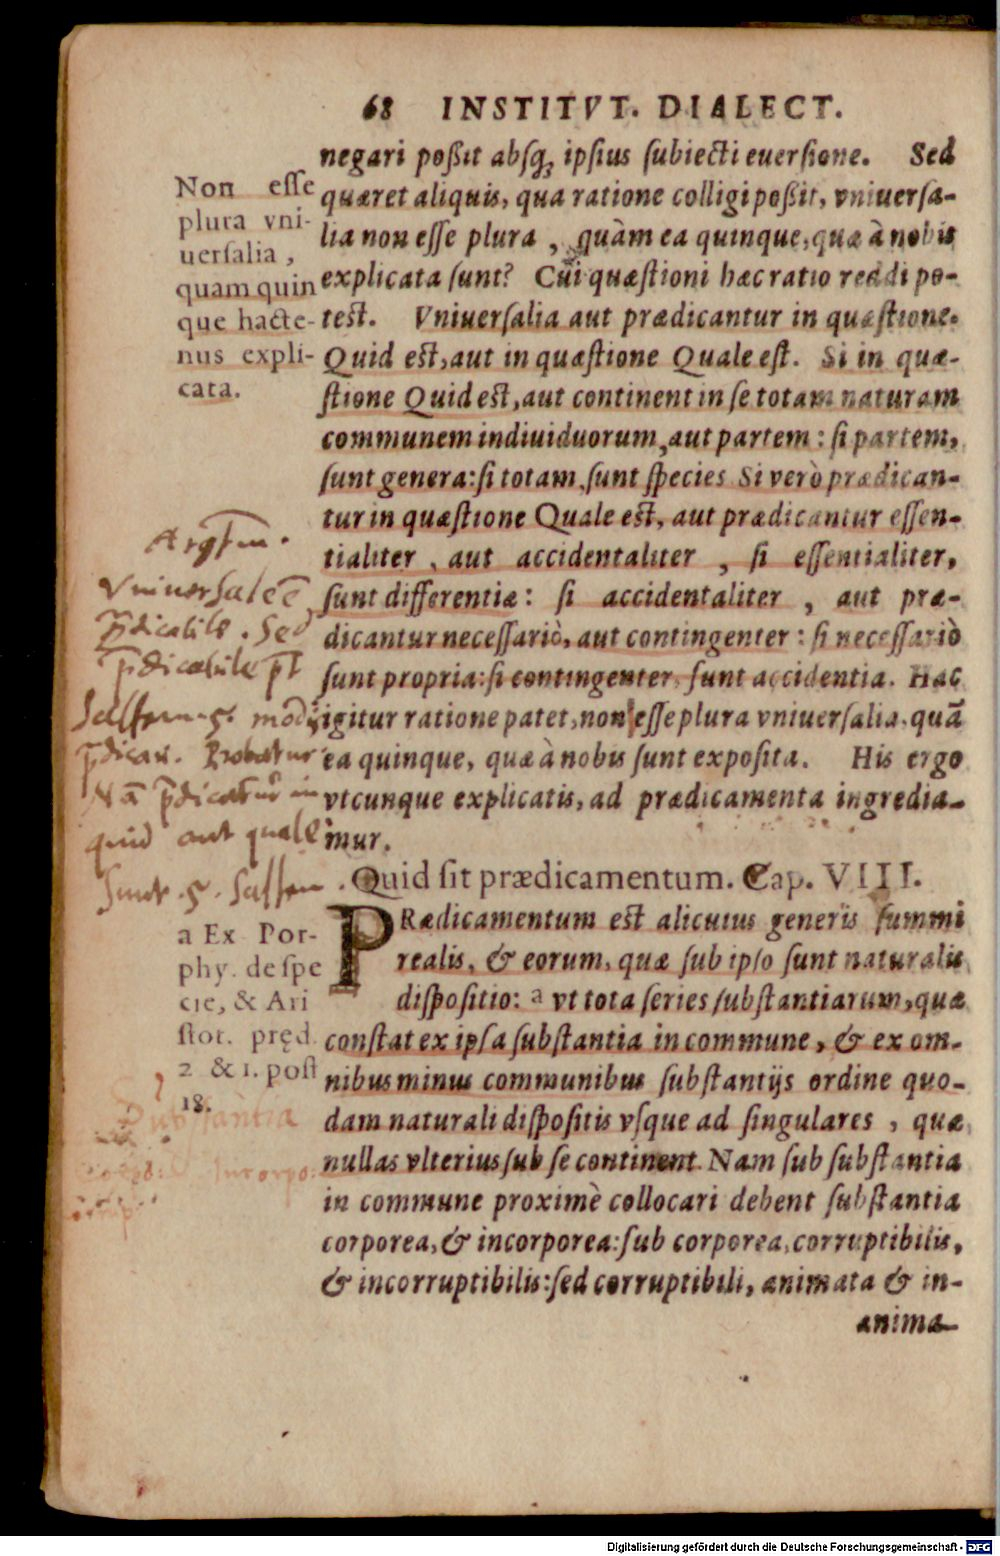 68 INSTITVT. DIALECT.
negari poßit absq́; ipsius subiecti euersione. Sed
quæret aliquis, qua ratione colligi poßit, vniuersa-
lia non esse plura, quàm ea quinque, quæ à nobis
explicata sunt? Cui quæstioni hæc ratio reddi po-
test. Vniuersalia aut prædicantur in quæstione.
Quid est, aut in quæstione Quale est. Si in quæ-
stione Quid est, aut continent in se totam naturam
communem indiuiduorum, aut partem: si partem,
sunt genera: si totam, sunt species Si verò prædican-
tur in quæstione Quale est, aut prædicantur essen-
tialiter, aut accidentaliter, si essentialiter,
sunt differentiæ: si accidentaliter, aut præ-
dicantur necessariò, aut contingenter: si necessariò
sunt propria: si contingenter, sunt accidentia. Hac
igitur ratione patet, non esse plura vniuersalia, quã
ea quinque, quæ à nobis sunt exposita. His ergo
vtcunque explicatis, ad prædicamenta ingredia-
mur.
Non esse
plura vni-
uersalia,
quam quin
que hacte-
nus expli-
cata.
Vniuersale ẽ
p̄dicabile. Sed
p̄dicabile
modis
p̄dicari. Probatur
Nã p̄dicatur in
quid aut quale
Sunt .5.
Quid sit prædicamentum. Cap. VIII.
PRædicamentum est alicuius generis summi
realis, & eorum, quæ sub ipso sunt naturalis
dispositio: a vt tota series substantiarum, quæ
constat ex ipsa substantia in commune, & ex om-
nibus minus communibus substantijs ordine quo-
dam naturali dispositis vsque ad singulares, quæ
nullas vlterius sub se continent. Nam sub substantia
in commune proximè collocari debent substantia
corporea, & incorporea: sub corporea, corruptibilis,
& incorruptibilis: sed corruptibili, animata & in-
anima-
a Ex Por-
phy. de spe
cie, & Ari
stot. pręd.
2 & 1. post
18.
Substantia
Digitalisierung gefördert durch die Deutsche Forschungsgemeinschaft - DFG